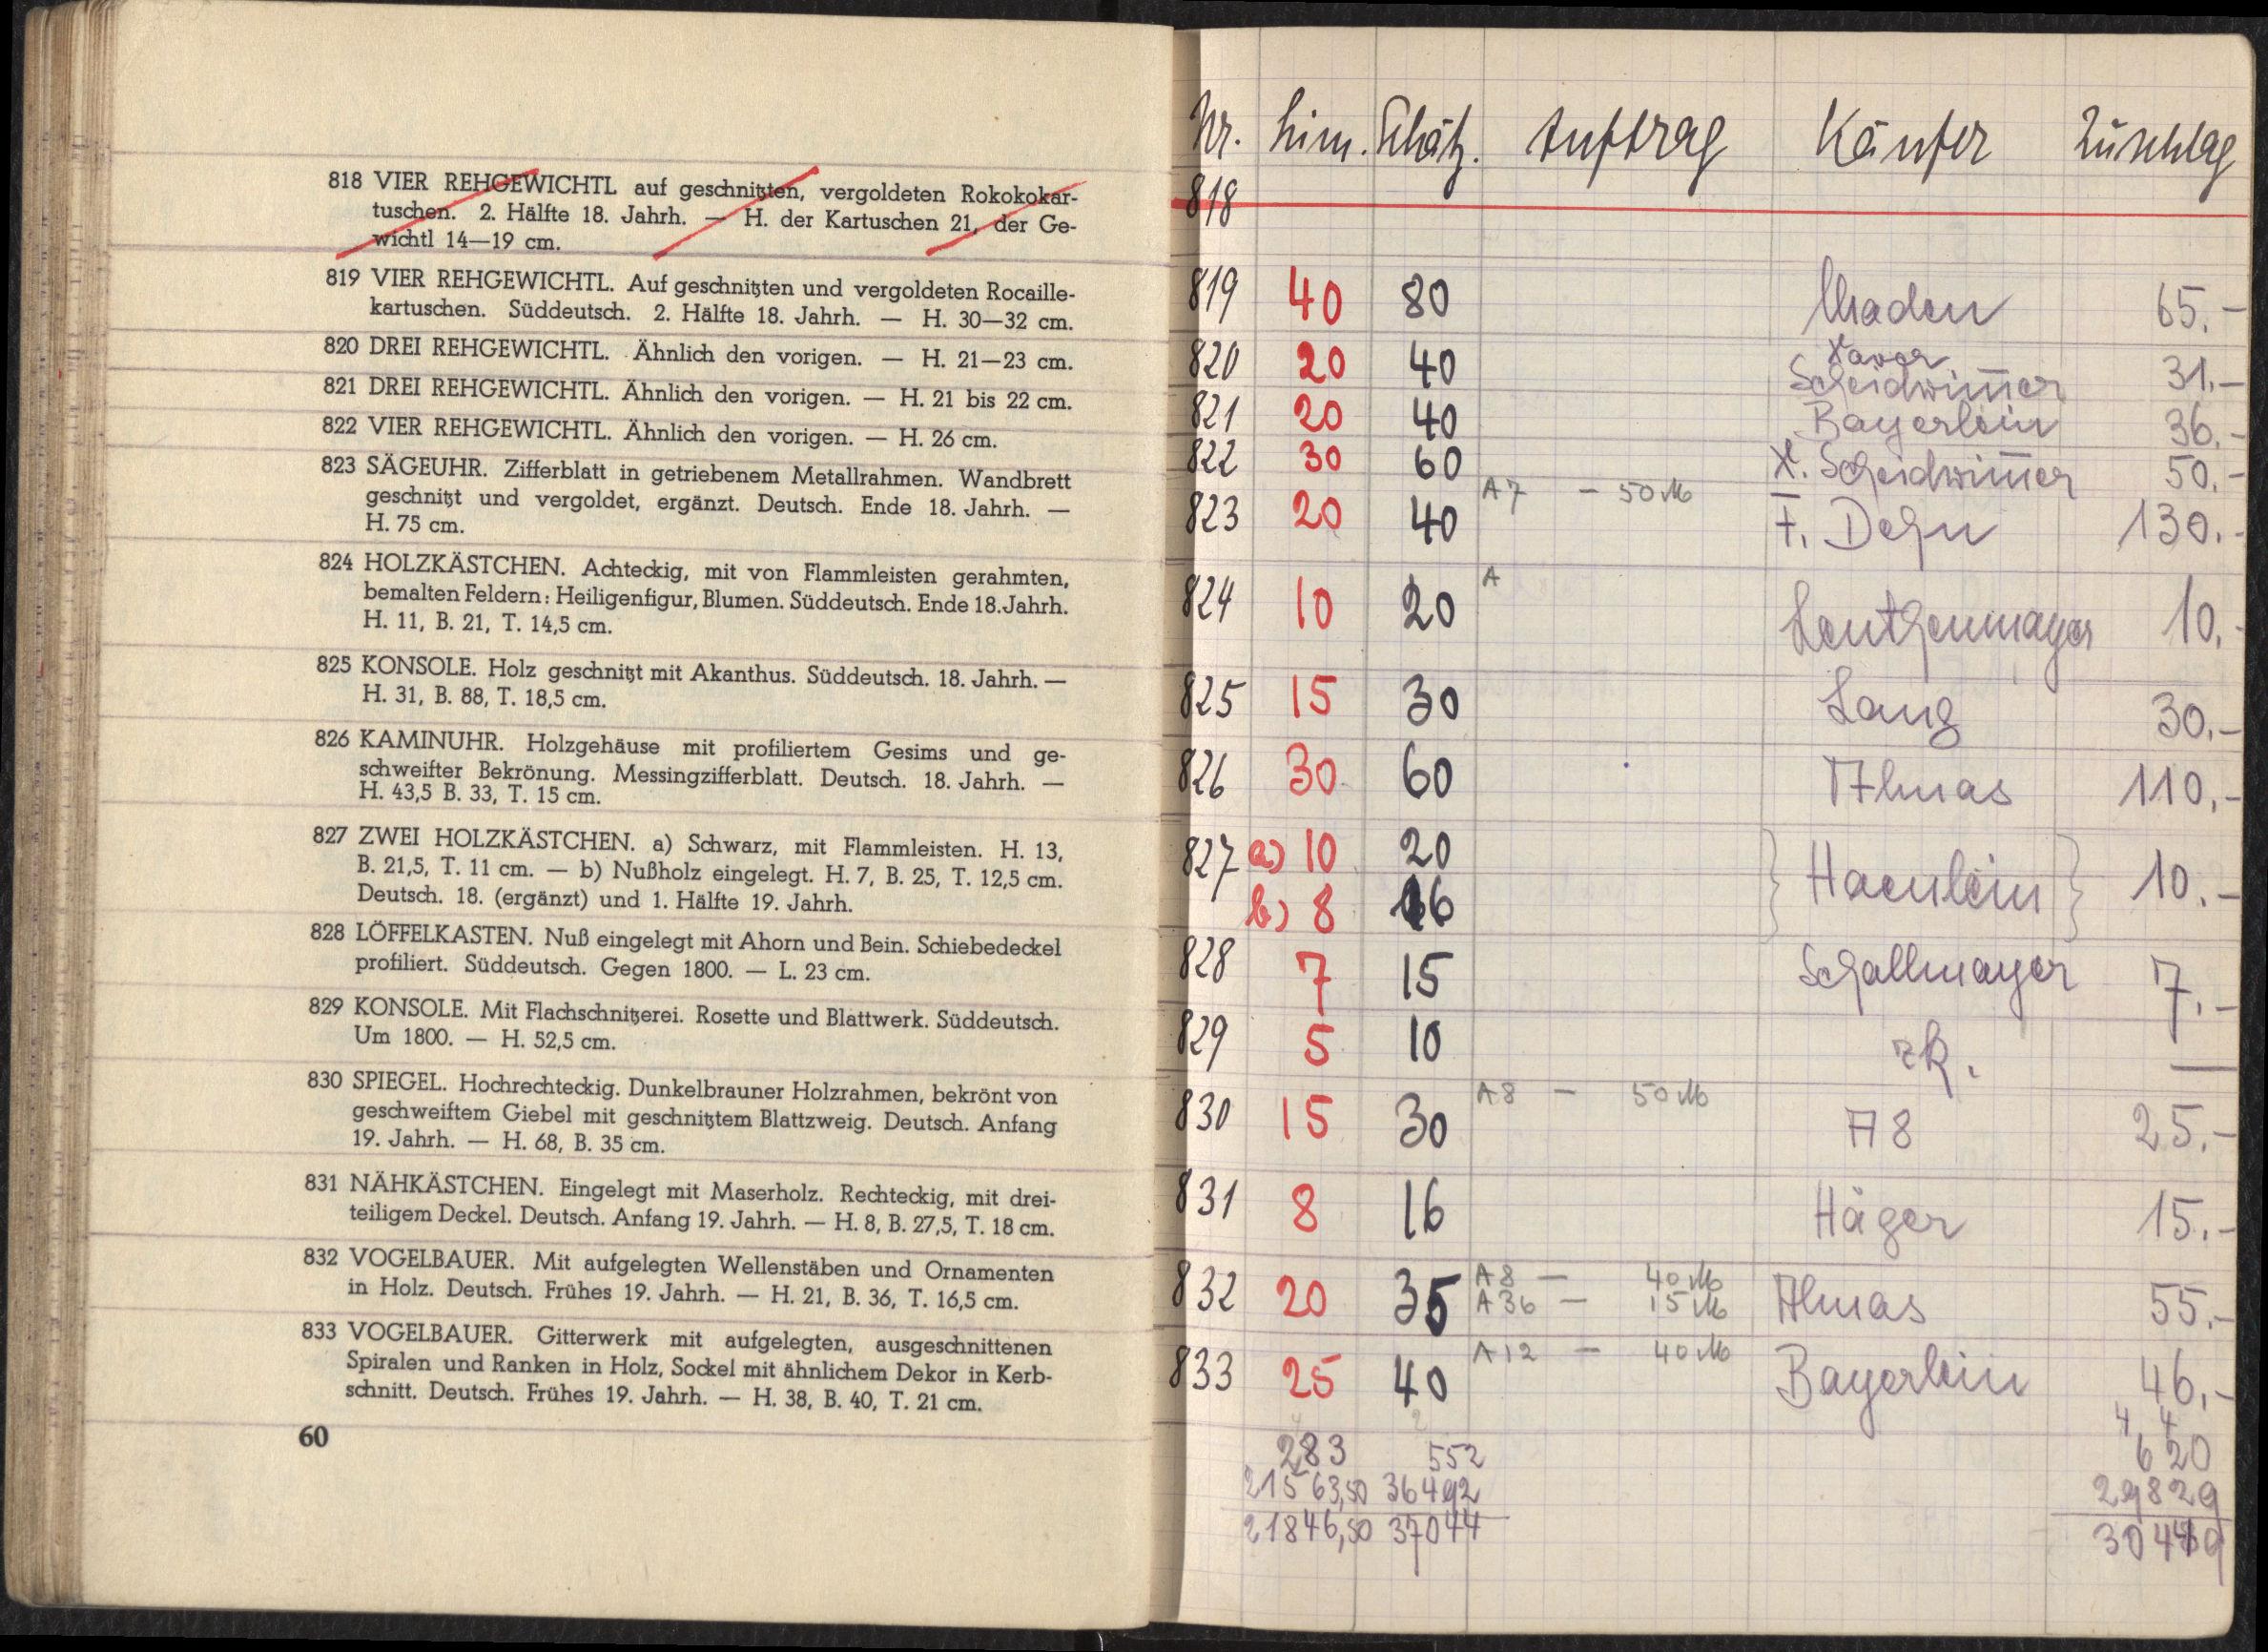 818 VIER REHGEWICHTL auf geschnitzten, vergoldeten Rokokokar-
tuschen. 2. Hälfte 18. Jahrh. — H. der Kartuschen 21, der Ge-
wichtl 14—19 cm.
819 VIER REHGEWICHTL. Auf geschnitzten und vergoldeten Rocaille-
kartuschen. Süddeutsch. 2. Hälfte 18. Jahrh. — H. 30—32 cm.
820 DREI REHGEWICHTL. Ähnlich den vorigen. — H. 21—23 cm.
821 DREI REHGEWICHTL. Ähnlich den vorigen. — H. 21 bis 22 cm.
822 VIER REHGEWICHTL. Ähnlich den vorigen. — H. 26 cm.
823 SÄGEUHR. Zifferblatt in getriebenem Metallrahmen. Wandbrett
geschnitzt und vergoldet, ergänzt. Deutsch. Ende 18. Jahrh. —
H. 75 cm.
824 HOLZKÄSTCHEN. Achteckig, mit von Flammleisten gerahmten,
bemalten Feldern: Heiligenfigur, Blumen. Süddeutsch. Ende 18. Jahrh.
H. 11, B. 21, T. 14,5 cm.
825 KONSOLE. Holz geschnitzt mit Akanthus. Süddeutsch. 18. Jahrh. —
H. 31, B. 88, T. 18,5 cm.
826 KAMINUHR. Holzgehäuse mit profiliertem Gesims und ge-
schweifter Bekrönung. Messingzifferblatt. Deutsch. 18. Jahrh. —
H. 43,5 B. 33, T. 15 cm.
827 ZWEI HOLZKÄSTCHEN. a) Schwarz, mit Flammleisten. H. 13,
B. 21,5, T. 11 cm. — b) Nußholz eingelegt. H. 7, B. 25, T. 12,5 cm.
Deutsch. 18. (ergänzt) und 1. Hälfte 19. Jahrh.
828 LÖFFELKASTEN. Nuß eingelegt mit Ahorn und Bein. Schiebedeckel
profiliert. Süddeutsch. Gegen 1800. — L. 23 cm.
829 KONSOLE. Mit Flachschnitzerei. Rosette und Blattwerk. Süddeutsch.
Um 1800. — H. 52,5 cm.
830 SPIEGEL. Hochrechteckig. Dunkelbrauner Holzrahmen, bekrönt von
geschweiftem Giebel mit geschnitztem Blattzweig. Deutsch. Anfang
19. Jahrh. — H. 68, B. 35 cm.
831 NÄHKÄSTCHEN. Eingelegt mit Maserholz. Rechteckig, mit drei-
teiligem Deckel. Deutsch. Anfang 19. Jahrh. — H. 8, B. 27,5, T. 18 cm.
832 VOGELBAUER. Mit aufgelegten Wellenstäben und Ornamenten
in Holz. Deutsch. Frühes 19. Jahrh. — H. 21, B. 36, T. 16,5 cm.
833 VOGELBAUER. Gitterwerk mit aufgelegten, ausgeschnittenen
Spiralen und Ranken in Holz, Sockel mit ähnlichem Dekor in Kerb-
schnitt. Deutsch. Frühes 19. Jahrh. — H. 38, B. 40, T. 21 cm.
60
Nr. Lim. Schätz. Auftrag Käufer Zuschlag
818
819 40 80 Maden 65.–
820 20 40 Xaver Scheidwimmer 31.–
821 20 40 Bayerlein 36.–
822 30 60 X. Scheidwimmer 50.–
823 20 40 A 7 – 50 M F. Dehn 130.–
824 10 20 A Leuthenmayer 10.–
825 15 30 Lang 30.–
826 30 60 Almas 110.–
827 a) 10 20 Haenlein 10.–
b) 8 16
828 7 15 Schallmayer 7.–
829 5 10 zR. —
830 15 30 A 8 – 50 M A 8 25.–
831 8 16 Häger 15.–
832 20 35 A 8 – 40 M Almas 55.–
A 36 – 15 M
833 25 40 A 12 – 40 M Bayerlein 46.–
283 552 620
21563,50 36492 29829
21846,50 37044 30449